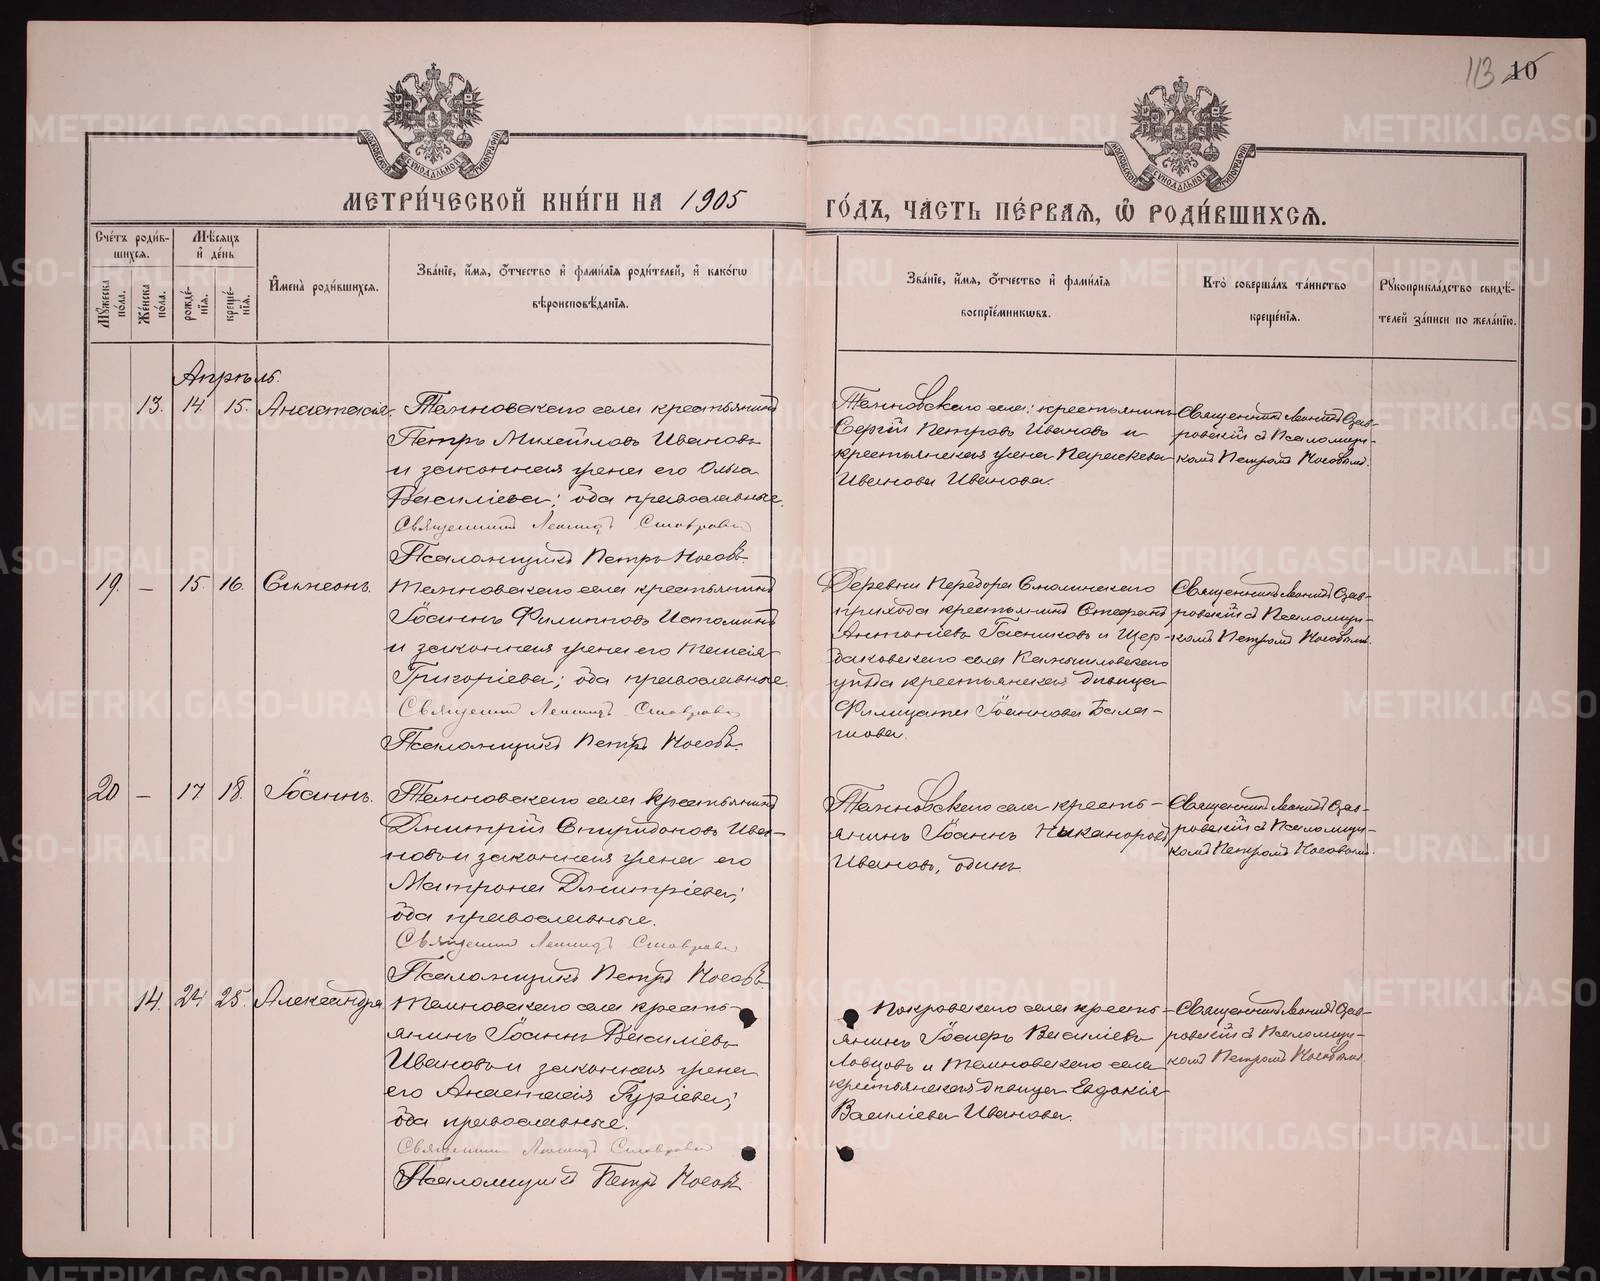 113 10
МЕТРИ́ЧЕСКОЙ КНИ́ГИ НА 1905
ГО́ДЪ, ЧА́СТЬ ПЕ́РВАѦ, Ѽ РОДИ́ВШИХСѦ.
Сче́тъ роди́в-
шихсѧ.
Мѣ́сѧцъ
и҆ де́нь
Мꙋ́жеска по́ла.
Же́нска по́ла.
рожде́-
нїѧ.
креще́-
нїѧ.
И҆мена̀ роди́вшихсѧ.
Зва́нїе, и҆́мѧ, ѻ҆́тчество и҆ фами́лїѧ роди́телей, и҆ како́гѡ
вѣроисповѣ́данїѧ.
Зва́нїе, и҆́мѧ, ѻ҆́тчество и҆ фами́лїѧ
воспрїе́мникѡвъ.
Кто̀ соверша́лъ та́инство
креще́нїѧ.
Рꙋкоприкла́дство свидѣ́-
телей за́писи по жела́нїю.
Апрѣль.
13. 14. 15. Анастасія
Темновскаго села крестьянинъ
Петръ Михейловъ Ивановъ
и законная жена его Ольга
Василіева; оба православные.
Священникъ Леонидъ
Псаломщикъ Петръ Носовъ
Сергій Петровъ Ивановъ и
крестьянская жена Параскева
Иванова Иванова.
Священникъ Леонидъ
с Псаломщи-
комъ Петромъ Носовымъ.
19. – 15. 16. Симеонъ.
Темновскаго села крестьянинъ
Іоаннъ Филипповъ Истоминъ
и законная жена его Таисія
Григоріева; оба православные.
Священникъ Леонидъ
Псаломщикъ Петръ Носовъ.
Деревни Перебора Смолинскаго
прихода крестьянинъ Стефанъ
Антоніевъ и Щер-
баковскаго села Камышловскаго
уѣзда крестьянская дѣвица
Филицата Іоаннова Бала-
шова.
Священникъ Леонидъ
с Псаломщи-
комъ Петромъ Носовымъ.
20 – 17 18. Іоаннъ.
Темновскаго села крестьянинъ
Дмитрій Спиридоновъ Ива-
новъ и законная жена его
Матрона Дмитріева;
оба православные.
Священникъ Леонидъ
Псаломщикъ Петръ Носовъ
Темновскаго села кресть-
янинъ Іоаннъ Никаноровъ
Ивановъ, одинъ.
Священникъ Леонидъ
с Псаломщи-
комъ Петромъ Носовымъ.
14. 24. 25. Александра
Темновскаго села кресть-
янинъ Іоаннъ Василіевъ
Ивановъ и законная жена
его Анастасія Гуріева;
оба православные.
Священникъ Леонидъ
Псаломщикъ Петръ Носовъ
Покровскаго села кресть-
янинъ Іосифъ Василіевъ
Ловцовъ и Темновскаго села
крестьянская дѣвица Евдокія
Василіева Иванова.
Священникъ Леонидъ
с Псаломщи-
комъ Петромъ Носовымъ.
METRIKI.GASO-URAL.RU